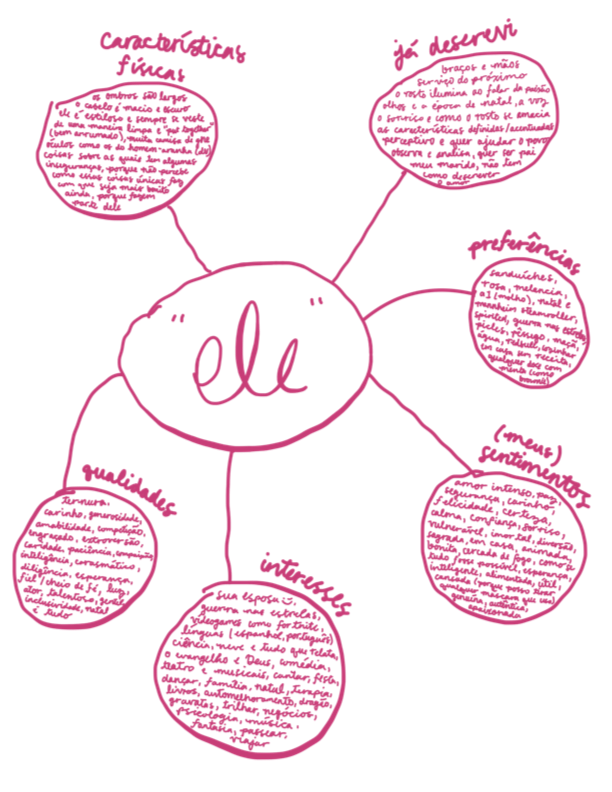 características
físicas
os ombros são largos
o cabelo é macio e escuro
ele é estiloso e sempre se veste
de uma maneira limpa e "put together"
(bem arrumado), muita camisa de gola
óculos como os do homem-aranha (do)
coisas sobre as quais tem algumas
inseguranças, porque não percebe
como essas coisas únicas faz
com que seja mais bonito
ainda, porque fazem
parte dele
já descrevi
braços e mãos
serviço do próximo
o rosto ilumina ao falar da paixão
olhos e a época de natal, a voz
o sorriso e como o rosto se amacia
as características definidas/acentuadas
perceptivo e quer ajudar o povo
observa e analisa, quer ser pai
meu marido, não tem
como descrever
o amor
preferências
sanduíches,
rosa, melancia,
a1 (molho), natal e
mannheim steamroller,
spirited, guerra nas estrelas,
picles, pêssego, maçã,
água, redbull, cozinhar
em casa sem receita,
qualquer doce com
menta (como
brownie)
"ele"
(meus)
sentimentos
amor intenso, paz,
segurança, carinho,
felicidade, certeza,
calma, confiança, sorriso,
vulnerável, imortal, diversão,
sagrada, em casa, animada,
bonita, cercada de fogo, como se
tudo fosse possível, esperança,
inteligente, alimentada, útil,
cansada (porque posso tirar
qualquer máscara que uso)
genuína, autêntica,
apaixonada
qualidades
ternura,
carinho, generosidade,
amabilidade, compaixão,
engraçado, extroversão,
caridade, paciência,
inteligência, carismático,
diligência, esperança,
fiel/cheio de fé, luz,
ator, talentoso, gentil
inclusividade, natal
é tudo
interesses
sua esposa :),
guerra nas estrelas,
videogames como fortnite,
línguas (espanhol, português)
ciência, neve e tudo que relata,
o evangelho e Deus, comédia,
teatro e musicais, cantar, festa,
dançar, família, natal, terapia,
livros, automelhoramento, dragão,
gravatas, trilhar, negócios,
psicologia, música,
fantasia, passear,
viajar